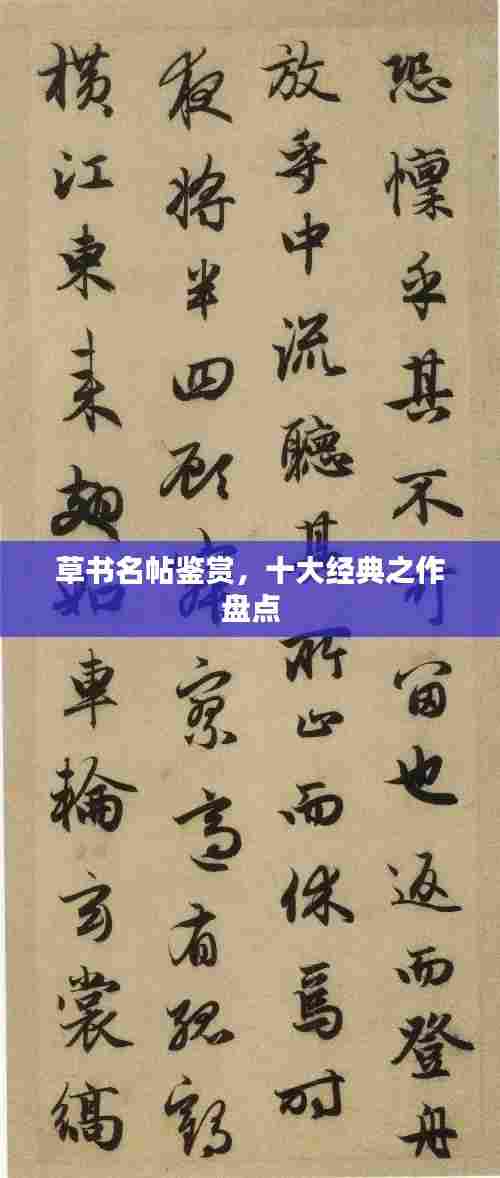 恐懍乎其不可留也返而登舟
放乎中流聽其所止而休焉时
夜將半四顾寂寥適有孤鶴
横江東来翅如車輪玄裳縞
草书名帖鉴赏，十大经典之作
盘点